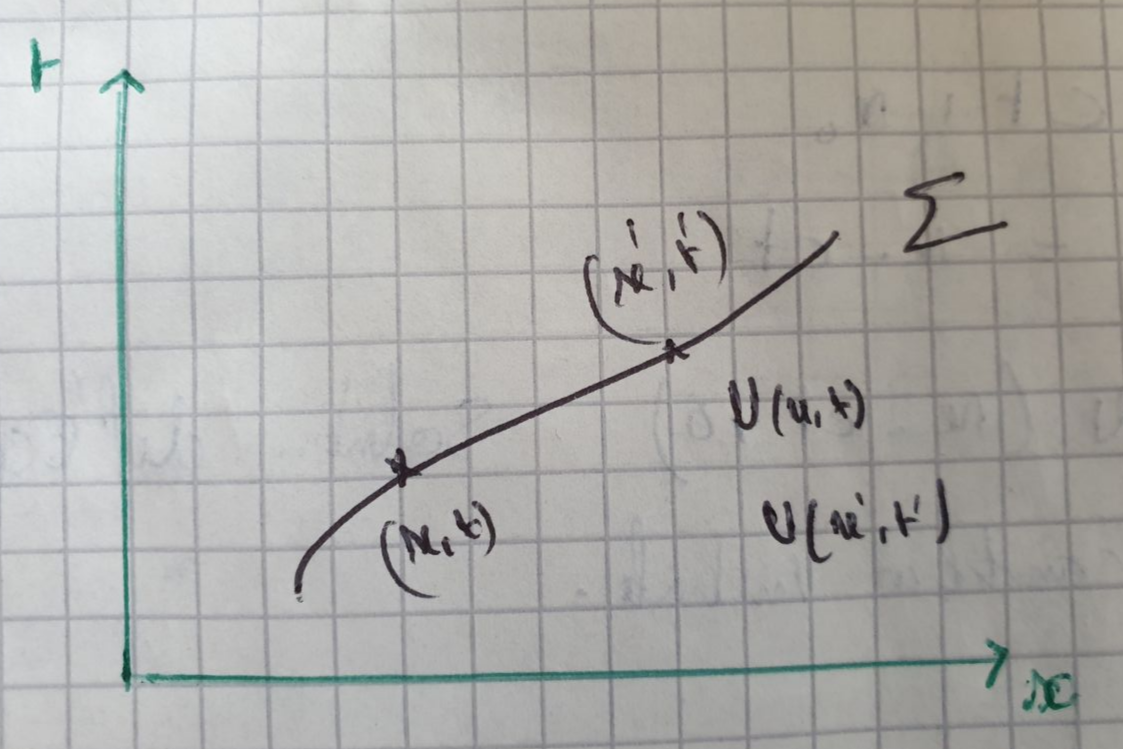 t
Σ
(x', t')
U(x, t)
(x, t)
U(x', t')
x